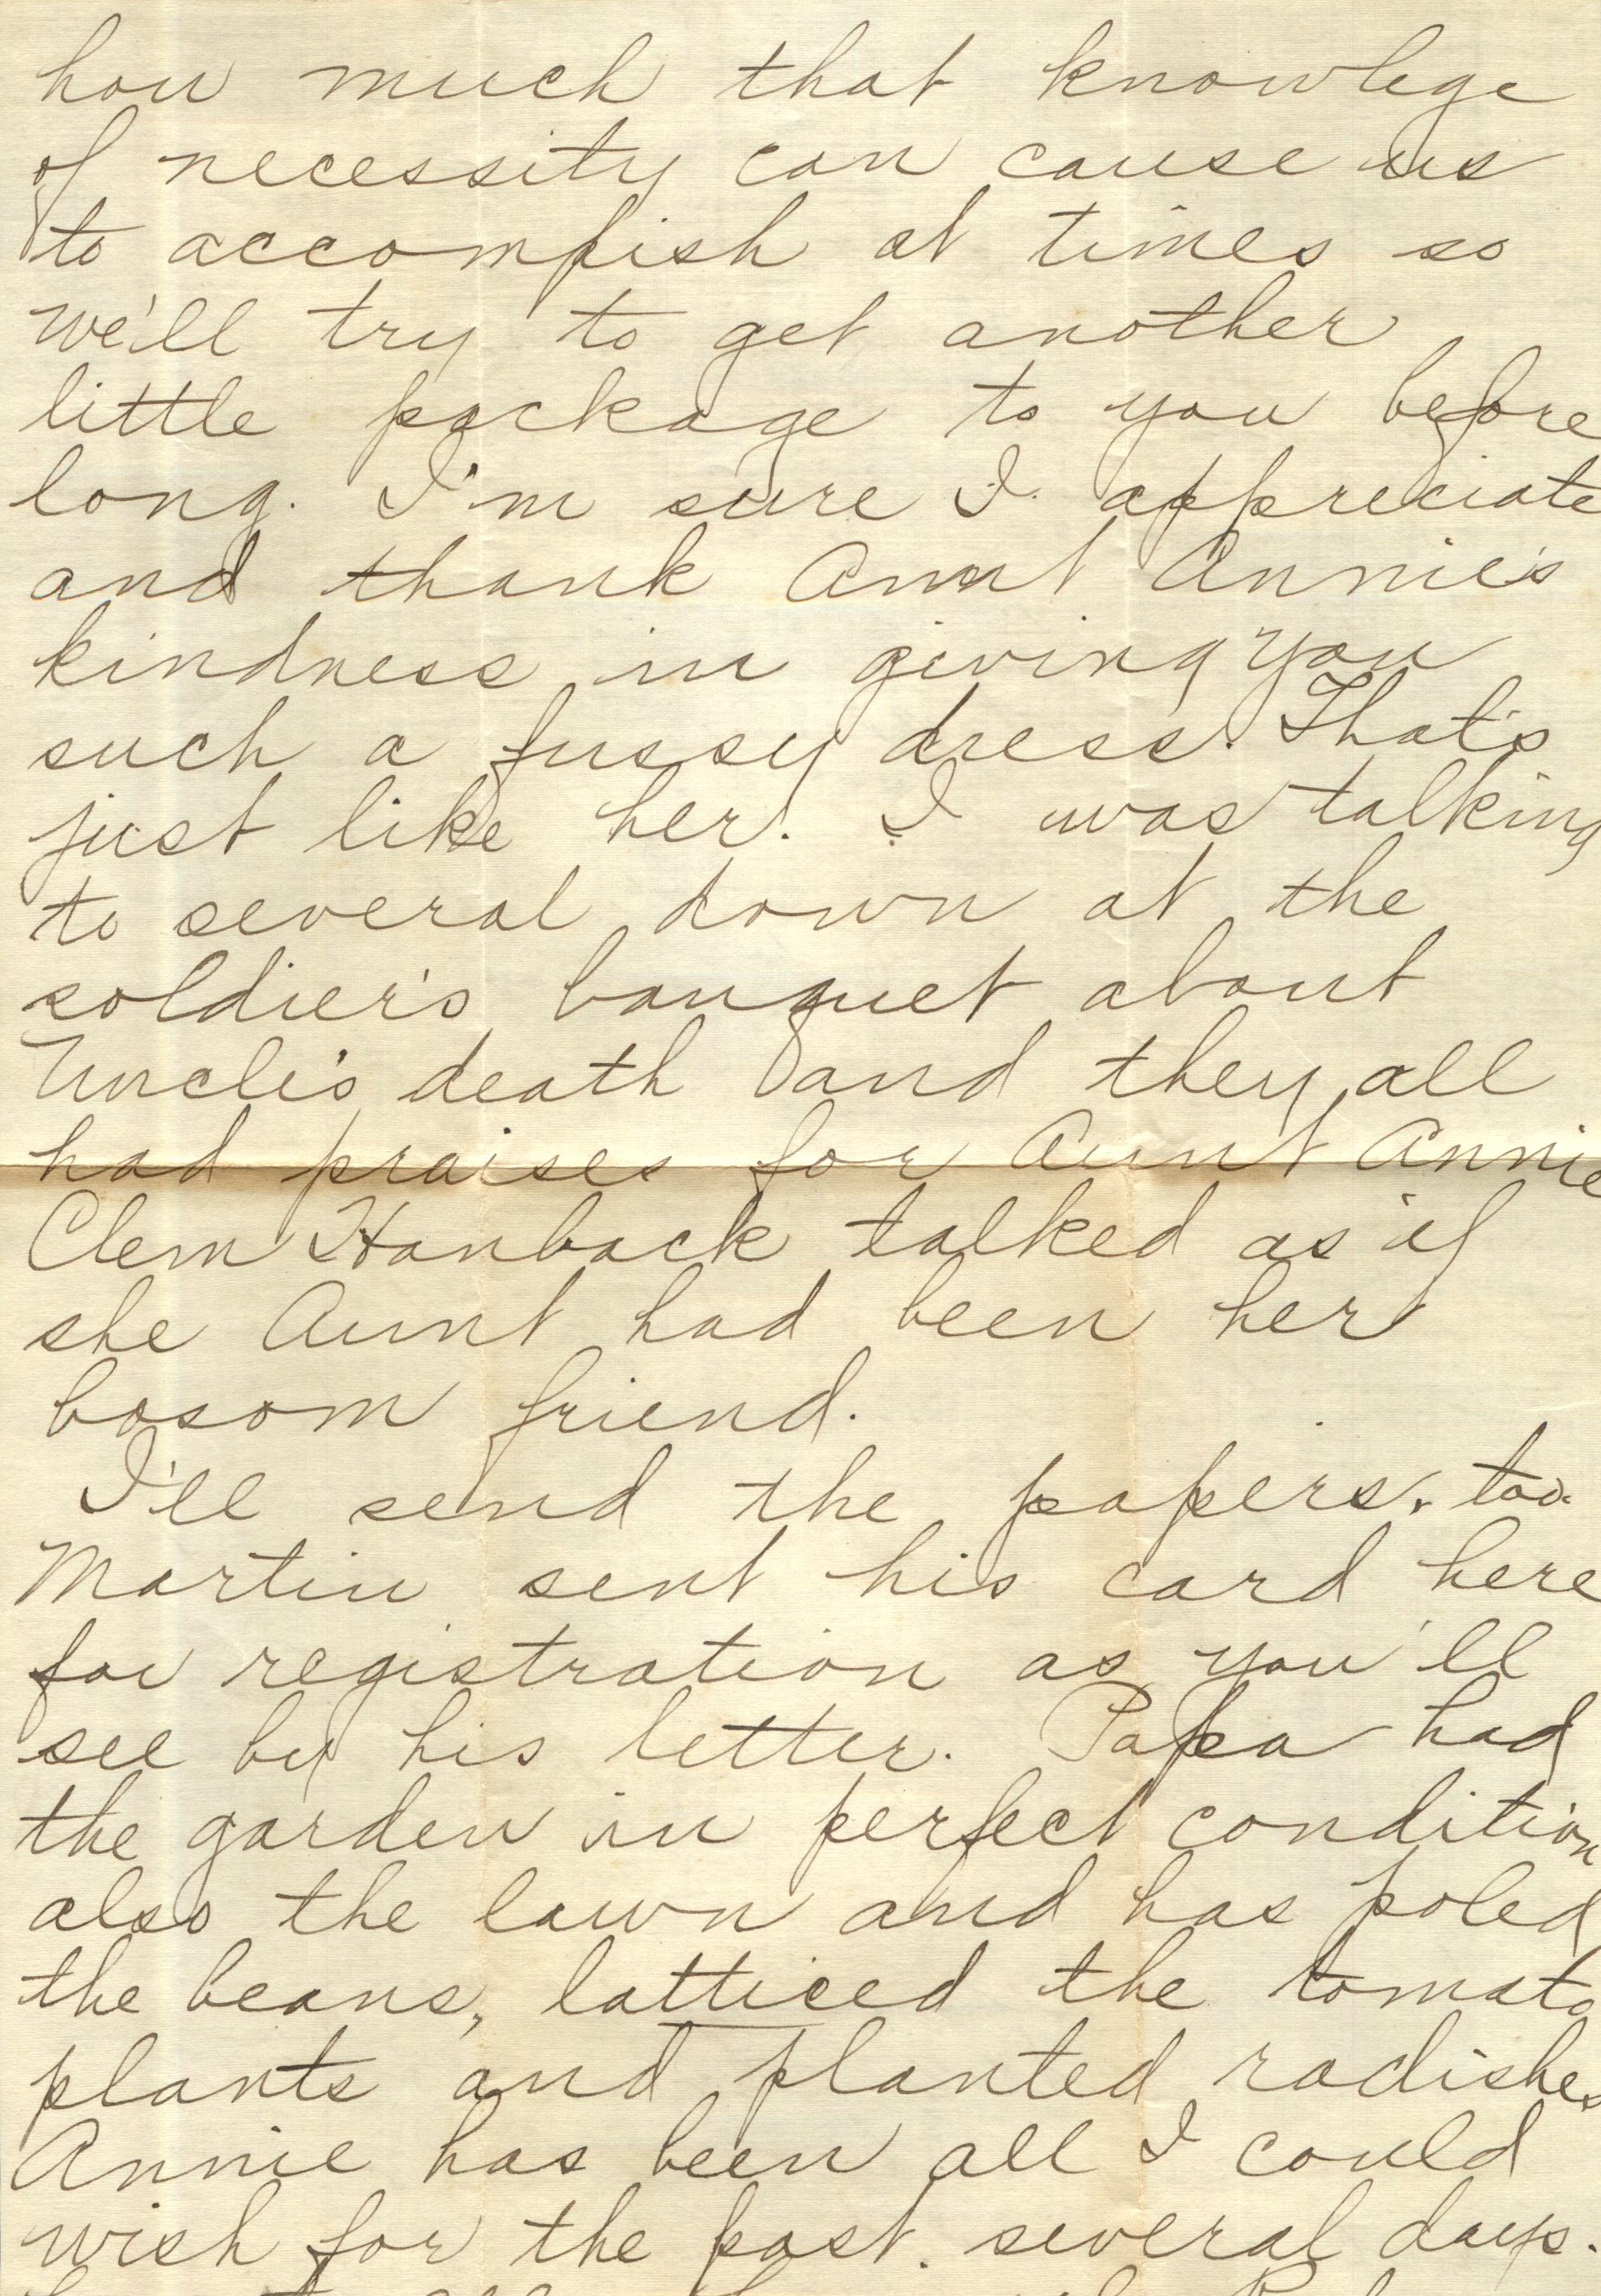 how much that knowlege
of necessity can cause us
to accomplish at times so
we'll try to get another
little package to you before
long. I'm sure I appreciate
and thank Aunt Annie's
kindness in giving you
such a fussy dress. That's
just like her. I was talking
to several down at the
soldier's banquet about
Uncle's death and they all
had praises for Aunt Annie
Clem Hanback talked as if
she Aunt had been her
bosom friend.
I'll send the papers, too.
Martin sent his card here
for registration as you'll
see by his letter. Papa had
the garden in perfect condition
also the lawn and has poled
the beans, latticed the tomato
plants and planted radishes
Annie has been all I could
wish for the past several days.